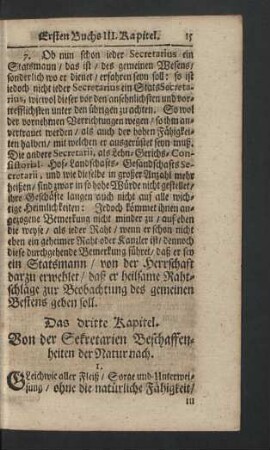 Ersten Buchs III. Kapitel. 15
7. Ob nun schon ieder Secretarius ein
Statsmann / das ist / des gemeinen Wesens /
sonderlich wo er dienet / erfahren seyn soll: so ist
iedoch nicht ieder Secretarius ein StatsSecreta-
rius, wiewol dieser vor den ansehnlichsten und vor-
trefflichsten unter den übrigen zu achten. So wol
der vornehmen Verrichtungen wegen / so ihm an-
vertrauet werden / als auch der hohen Fähigkei-
ten halben / mit welchen er ausgerüstet seyn muß.
Die andere Secretarii, als Lehn- Gerichs- Con-
sistorial- Hof- Landschafts- Gesandschafts Se-
cretarii, und wie dieselbe in großer Anzahl mehr
heißen / sind zwar in so hohe Würde nicht gestellet /
ihre Geschäfte langen auch nicht auf alle wich-
tige Heimlichkeiten: Jedoch kömmet ihnen an-
gezogene Bemerkung nicht minder zu / auf eben
die weyse / als ieder Raht / wenn er schon nicht
eben ein geheimer Raht oder Kanzler ist / dennoch
diese durchgehende Bemerkung führet / daß er sey
ein Statsmann / von der Herrschaft
darzu erwehlet / daß er heilsame Raht-
schläge zur Beobachtung des gemeinen
Bestens geben soll.
Das dritte Kapitel.
Von der Sekretarien Beschaffen-
heiten der Natur nach.
1.
GLeichwie aller Fleiß / Sorge und Unterwei-
sung / ohne die natürliche Fähigkeit /
in